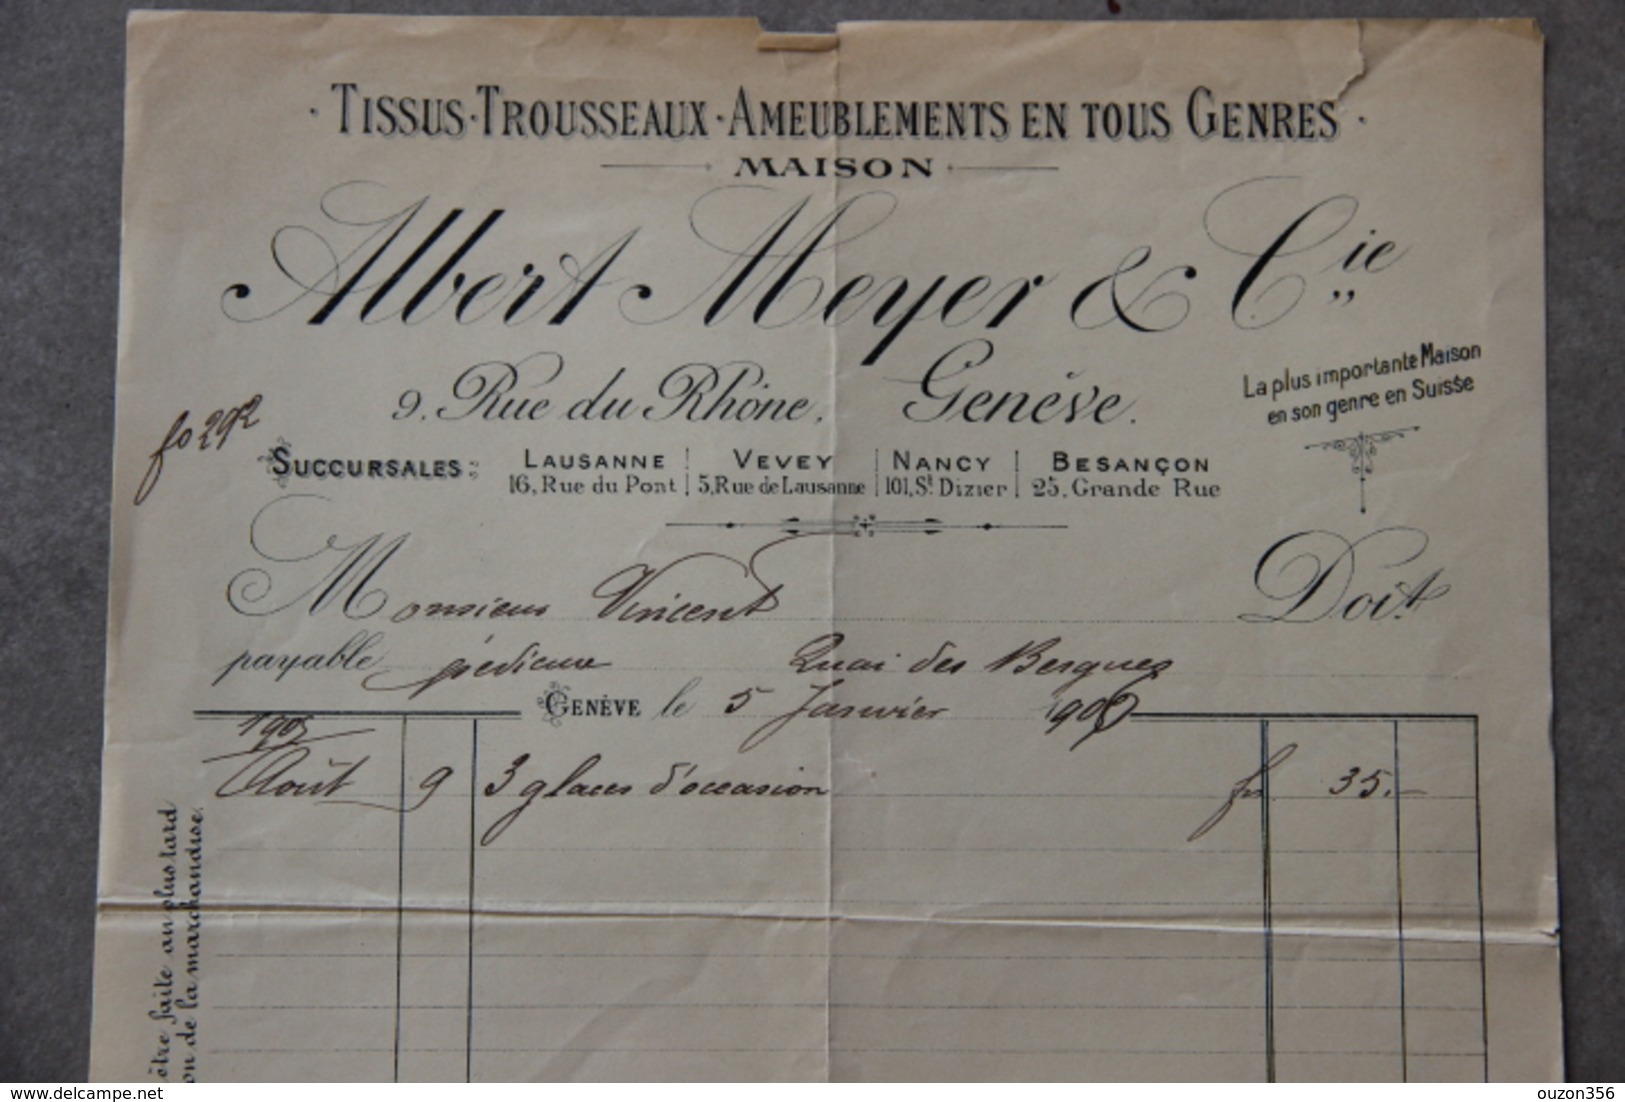 · TISSUS · TROUSSEAUX · AMEUBLEMENTS EN TOUS GENRES ·
MAISON
Albert Meyer & Cie
9, Rue du Rhône, Genève.
La plus importante Maison
en son genre en Suisse
fo 292
SUCCURSALES: LAUSANNE | VEVEY | NANCY | BESANÇON
16, Rue du Pont | 5, Rue de Lausanne | 101, St Dizier | 25, Grande Rue
Monsieur Vincent Doit
payable pédicure Quai des Bergues
GENÈVE le 5 Janvier 1906
1905
Août 9 3 glaces d'occasion frs 35.—
être faite au plus tard
on de la marchandise.
delcampe.net
ouzon356